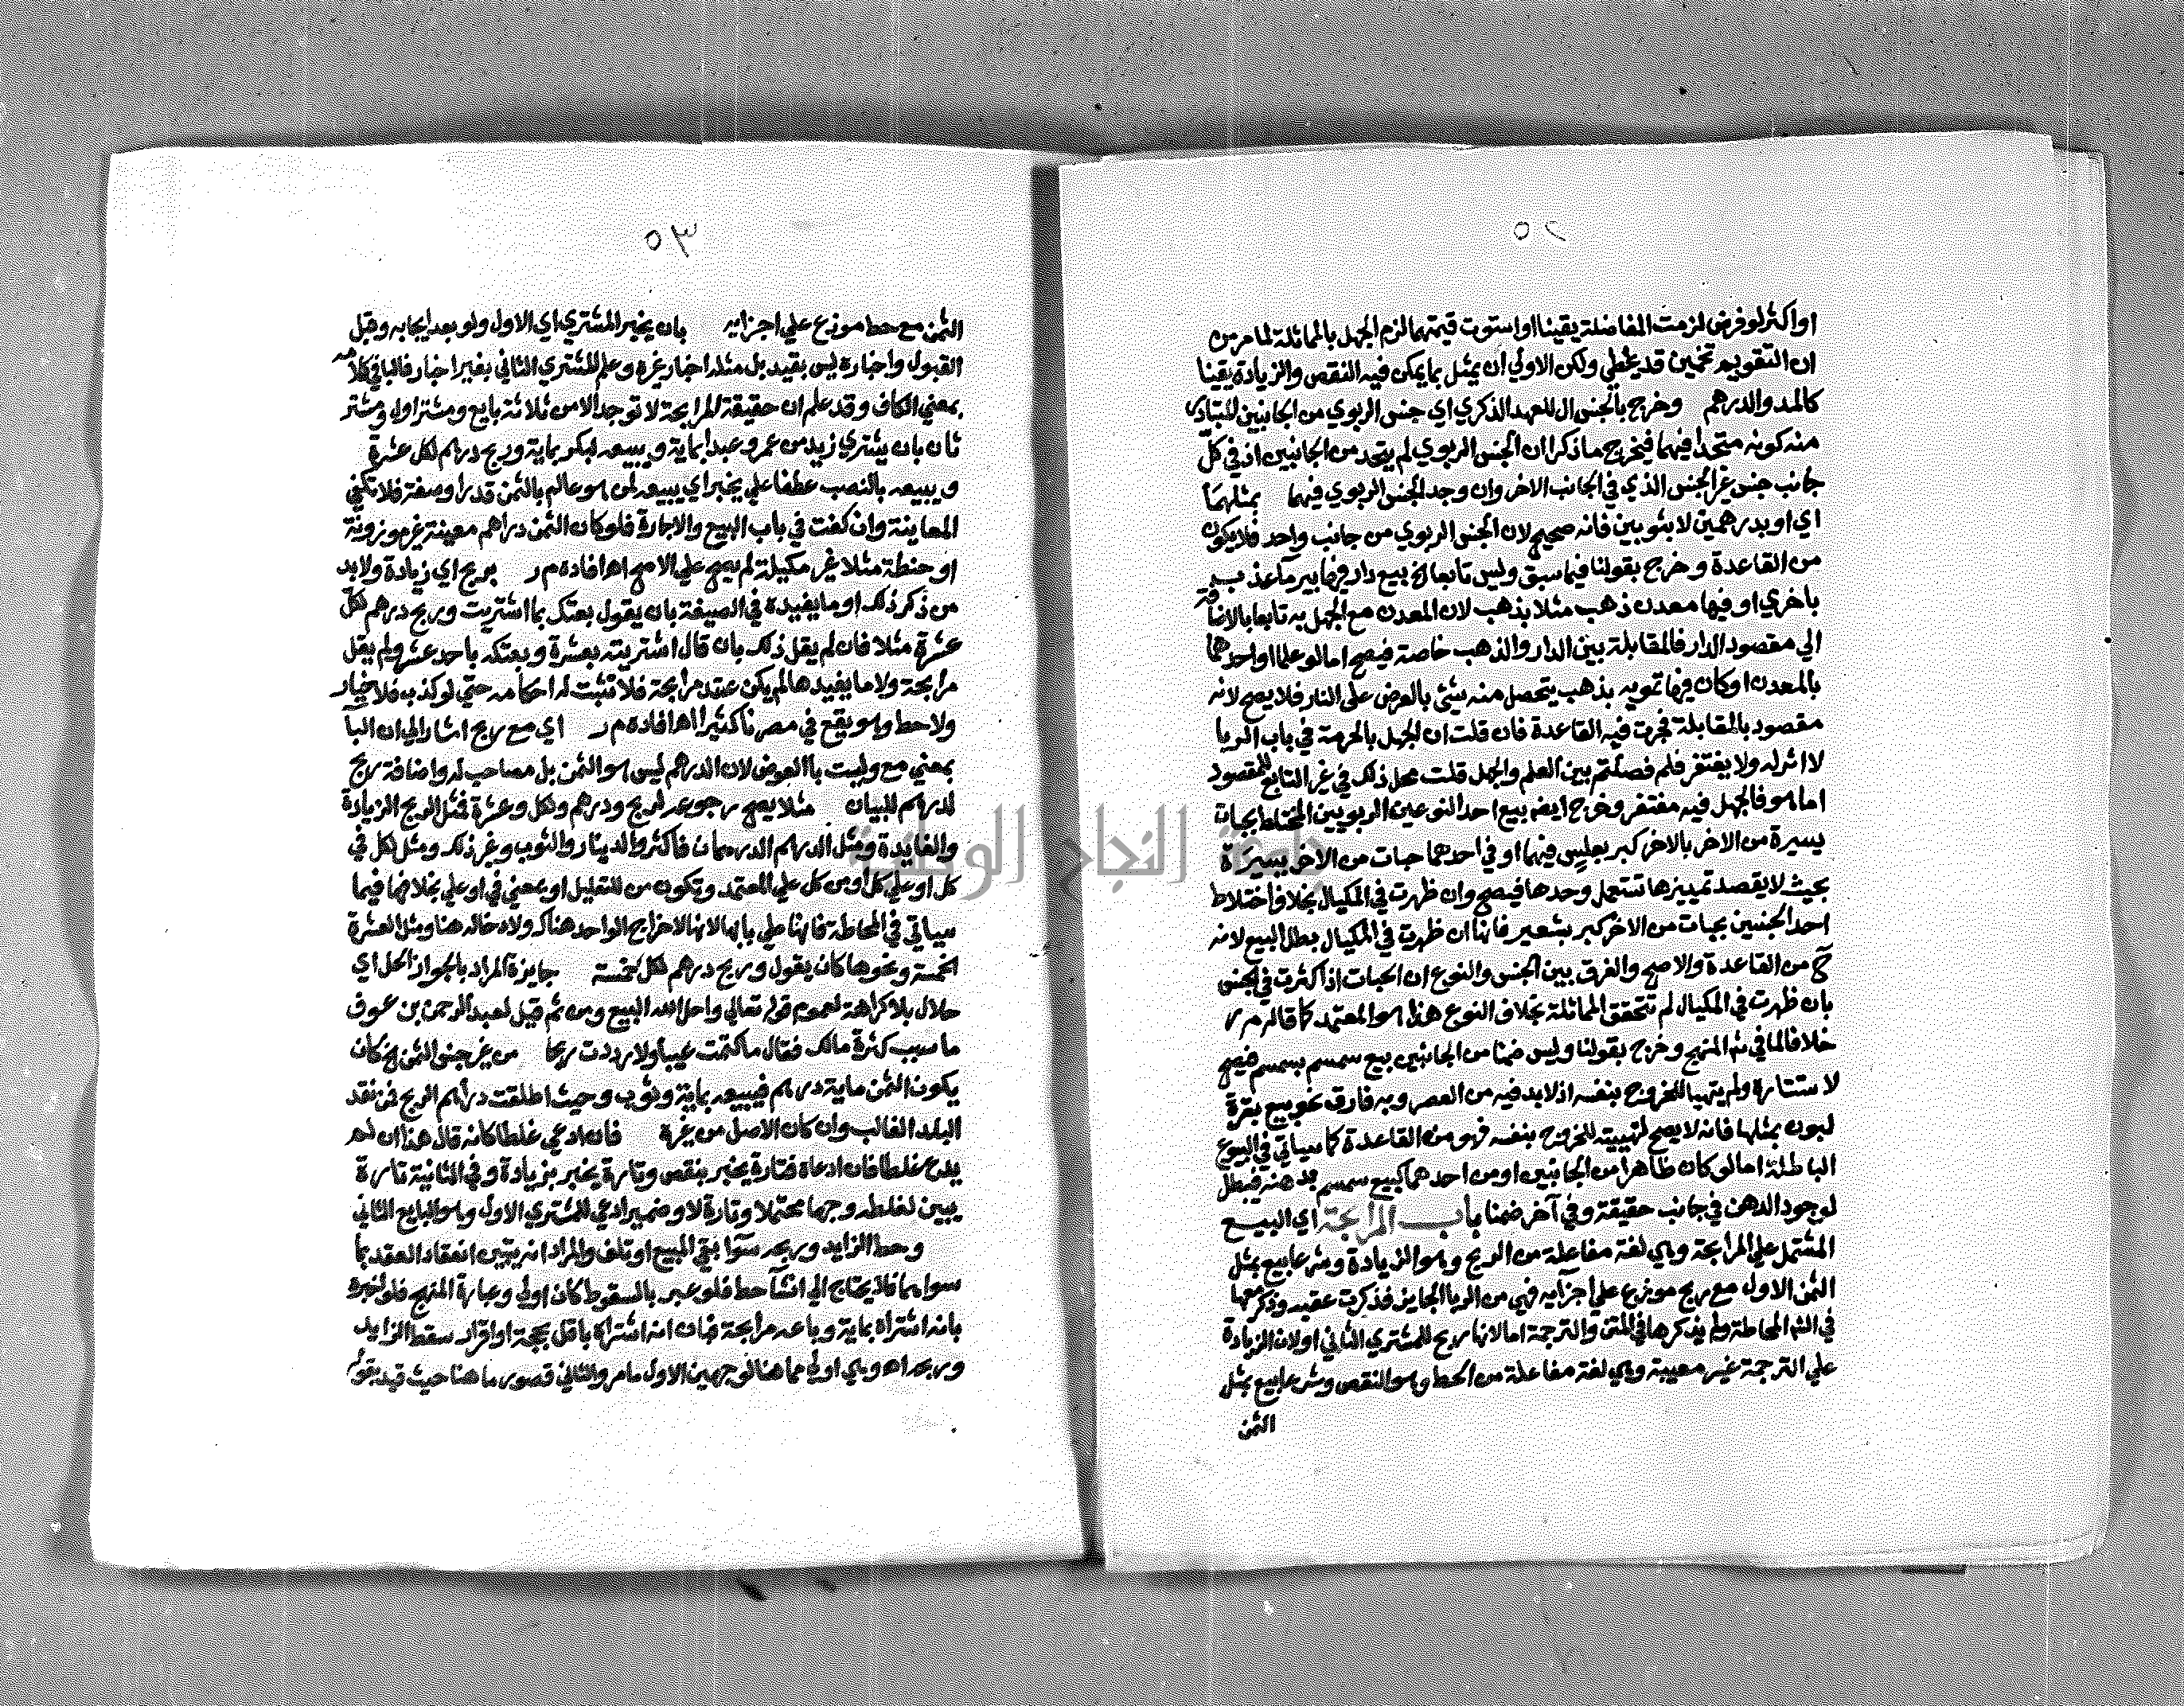 ٥٢
او اكثر لو فرض لزمت المفاضلة يقينا او استوت قيمتهما لزم الجهل بالمماثلة لما مر من
ان التقويم تخمين قد يخطي ولكن الاولي ان يمثل بما يمكن فيه النقص والزيادة يقينا
كالمد والدرهم وخرج بالجنس ال للعهد الذكري اي جنس الربوي من الجانبين للمتبادر
منه كونه متحدا فيهما فيخرج ما ذكر ان الجنس الربوي لم يتحد من الجانبين اذ في كل
جانب جنس غير الجنس الذي في الجانب الاخر وان وجد الجنس الربوي فيهما بمثلهما
اي او بدرهمين لا بثوبين فانه صحيح لان الجنس الربوي من جانب واحد فلا يكون
من القاعدة وخرج بقولنا فيما سبق وليس تابعا الخ بيع دار فيها بير ماء عذب
باخري او فيها معدن ذهب مثلا بذهب لان المعدن مع الجهل به تابع بالاضافة
الي مقصود الدار فالمقابلة بين الدار والذهب خاصة فيصح اما لو علما او احدهما
بالمعدن او كان فيها تمويه بذهب يتحصل منه شئ بالعرض علي النار فلا يصح لانه
مقصود بالمقابلة فجرت فيه القاعدة فان قلت ان الجهل بالحرمة في باب الربا
لا اثر له ولا يغتفر فلم فصلتم بين العلم والجهل قلت محل ذلك في غير التابع للمقصود
اما هو فالجهل فيه مغتفر وخرج ايضا بيع احد النوعين الربويين المختلط بحبات
يسيرة من الاخر بالاخر كبر بعلس فيهما او في احدهما حبات من الاخر يسيرة
بحيث لا يقصد تمييزها تستعمل وحدها فيصح وان ظهرت في المكيال بخلاف اختلاط
احد الجنسين بحبات من الاخر كبر بشعير فانها ان ظهرت في المكيال بطل البيع لانه
ح من القاعدة والاصح والفرق بين الجنس والنوع ان الحبات اذا كثرت في الجنس
بان ظهرت في المكيال لم تتحقق المماثلة بخلاف النوع هذا هو المعتمد كما قاله م ر
خلافا لما في ش المنهج وخرج بقولنا وليس ضمنا من الجانبين بيع سمسم بسمسم فيصح
لاستتاره ولم يتهيا للخروج بنفسه اذ لا بد فيه من العصر وبه فارق نحو بيع بقرة
لبون بمثلها فانه لا يصح لتهيئته للخروج بنفسه فهو من القاعدة كما سياتي في البيوع
الباطلة اما لو كان ظاهرا من الجانبين او من احدهما كبيع سمسم بدهنه فيبطل
لوجود الدهن في جانب حقيقة وفي آخر ضمنا باب المرابحة اي البيع
المشتمل علي المرابحة وهي لغة مفاعلة من الربح وهو الزيادة وشرعا بيع بمثل
الثمن الاول مع ربح موزع علي اجزايه فهي من الربا الجايز فذكرت عقبه وذكر معها
في الش المحاطة ولم يذكرها في المتن والترجمة اما لانها ربح للمشتري الثاني او لان الزيادة
علي الترجمة غير معيبة وهي لغة مفاعلة من الحط وهو النقص وشرعا بيع بمثل
الثمن
٥٣
الثمن مع حط موزع علي اجزايه بان يخبر المشتري اي الاول ولو بعد ايجابه وقبل
القبول واخباره ليس بقيد بل مثله اخبار غيره وعلم المشتري الثاني بغير اخبار فالبا في كلامه
بمعني الكاف وقد علم ان حقيقة المرابحة لا توجد الا من ثلاثة بايع ومشتر اول ومشتر
ثان بان يشتري زيد من عمرو عبدا بماية ويبيعه لبكر بماية وربح درهم لكل عشرة
ويبيعه بالنصب عطفا علي يخبر اي يبيعه لمن هو عالم بالثمن قدرا وصفة فلا تكفي
المعاينة وان كفت في باب البيع والاجارة فلو كان الثمن دراهم معينة غير موزونة
او حنطة مثلا غير مكيلة لم يصح علي الاصح اه افاده م ر بربح اي زيادة ولا بد
من ذكر ذلك او ما يفيده في الصيغة بان يقول بعتك بما اشتريت وربح درهم لكل
عشرة مثلا فان لم يقل ذلك بان قال اشتريته بعشرة وبعتكه باحد عشر ولم يقل
مرابحة ولا ما يفيدها لم يكن عقد مرابحة فلا تثبت له احكامه حتي لو كذب فلا خيار
ولا حط وهو يقع في مصرنا كثيرا اه افاده م ر اي مع ربح اشار الي ان البا
بمعني مع وليست با العوض لان الدرهم ليس هو الثمن بل مصاحب له واضافة ربح
لدرهم للبيان مثلا يصح رجوعه لربح ودرهم ولكل وعشرة فمثل الربح الزيادة
والفايدة ومثل الدرهم الدرهمان فاكثر والدينار والثوب وغير ذلك ومثل لكل في
كل او علي كل او من كل علي المعتمد وتكون من للتعليل او بمعني في او علي بخلافها فيما
سياتي في المحاطة فانها علي بابها لانها لاخراج الواحد هناك ولا دخالة هنا ومثل العشرة
الخمسة ونحوها كان يقول وربح درهم لكل خمسة جايزة المراد بالجواز الحل اي
حلال بلا كراهة لعموم قوله تعالي واحل الله البيع ومن ثم قيل لعبد الرحمن بن عوف
ما سبب كثرة مالك فقال ما كتمت عيبا ولا رددت ربحا من غير جنس الثمن الخ كان
يكون الثمن ماية درهم فيبيعه بماية وثوب وحيث اطلقت دراهم الربح فمن نقد
البلد الغالب وان كان الاصل من غيره فان ادعي غلطا كانه قال هذا ان لم
يدع غلطا فان ادعاه فتارة يخبر بنقص وتارة يخبر بزيادة وفي الثانية تارة
يبين لغلطه وجها محتملا وتارة لا وضمير ادعي للمشتري الاول وهو البايع الثاني
وحط الزايد وربحه سوا بقي المبيع او تلف والمراد انه يتبين انعقاد العقد بما
سواهما فلا يحتاج الي انشا حط فلو عبر بالسقوط كان اولي وعبارة المنهج فلو اخبر
بانه اشتراه بماية وباعه مرابحة فبان انه اشتراه باقل بحجة او اقرار سقط الزايد
وربحه اه وهي اولي مما هنا لوجهين الاول ما مر والثاني قصور ما هنا حيث قيد بقوله